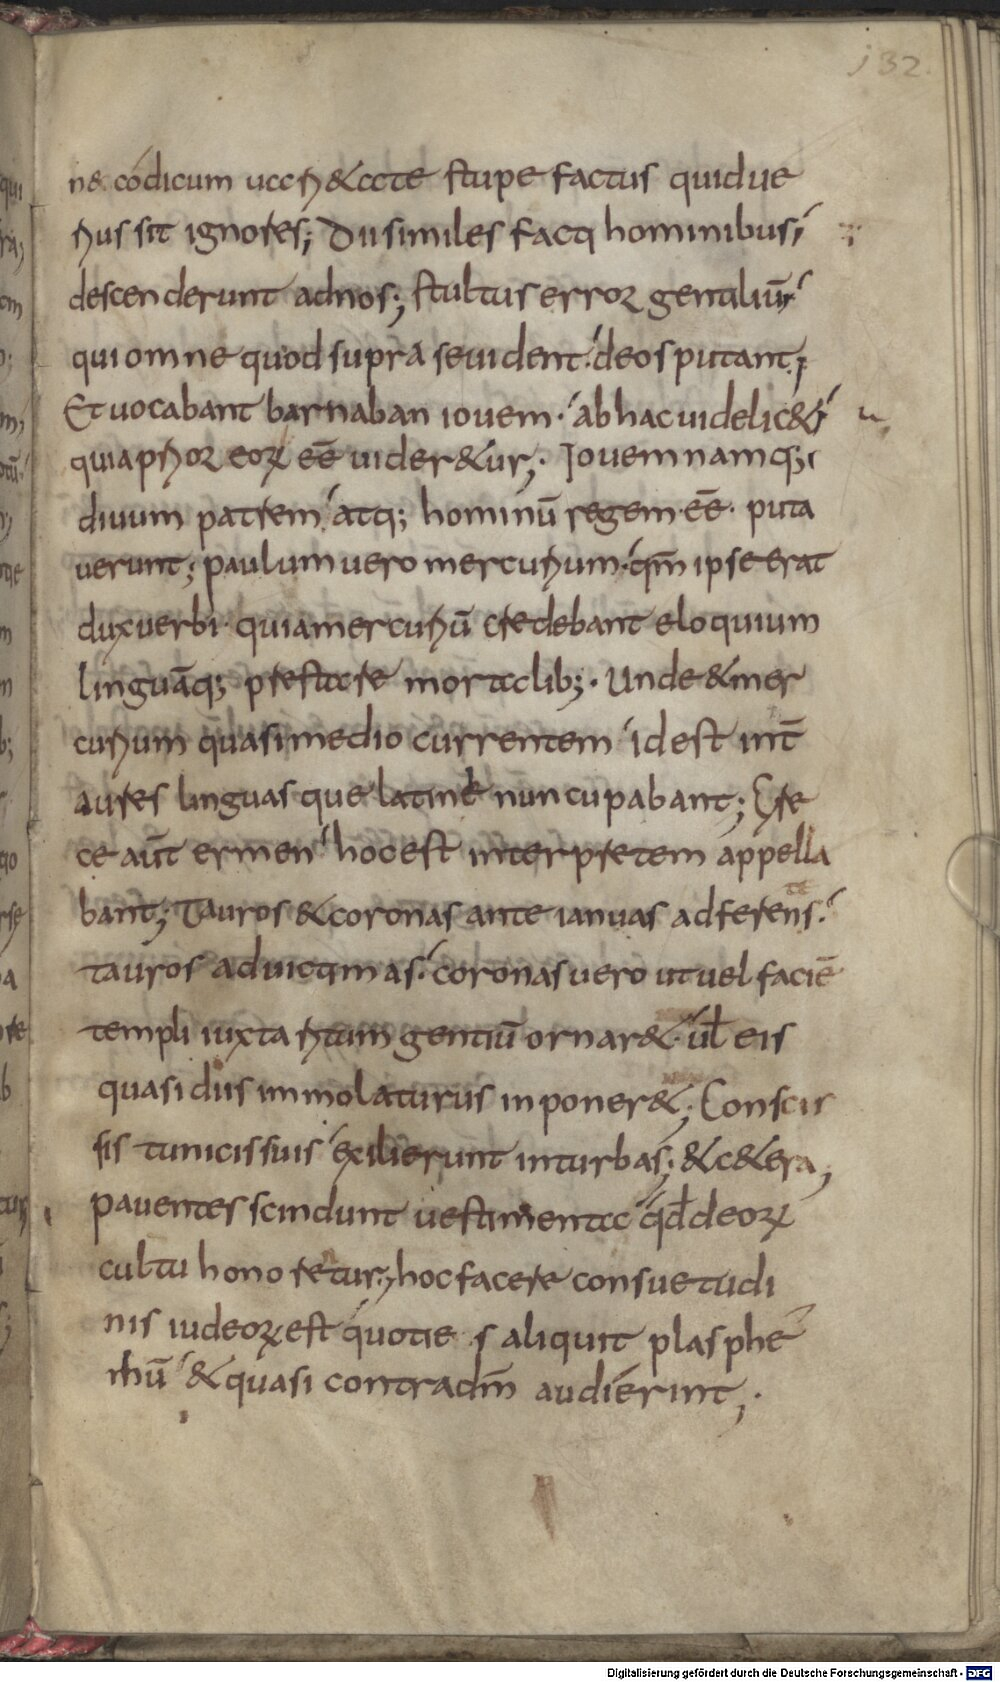 132.
n& códicum uari&ate stupe factus quid ue
rius sit ignores; Dii similes facti hominibus;
descenderunt ad nos; stultus error gentiliū;
qui omne quod supra se uident deos putant;
Et uocabant barnaban iouem · ab hac uidelic&
quia prior eoꝝ eē uider&ur; Iouem namq;
diuum patrem atq; hominū regem eē · puta
uerunt; paulum uero mercurium · qm̄ ipse erat
dux uerbi · quia mercuriū credebant eloquium
linguāq; prestare mortalib; · Unde & mer
curium quasi medio currentem id est int̄
aures linguas que latine nuncupabant; Gre
ce aūt ermen hoc est interpretem appella
bant; Tauros & coronas ante ianuas adferens
te
tauros ad uictimas · coronas uero ut uel faciē
templi iuxta ritum gentiū ornar& · úł eis
quasi diis immolaturus inponer&; Conscis
sis tunicis suis exilierunt in turbas; & c&era,
pauentes scindunt uestimenta qđ deoꝝ
cultu honoretur; hoc facere consuetudi
nis iudeoꝝ est quotie s aliquit plasphe
miū & quasi contra dm̄ audierint;
Digitalisierung gefördert durch die Deutsche Forschungsgemeinschaft - DFG